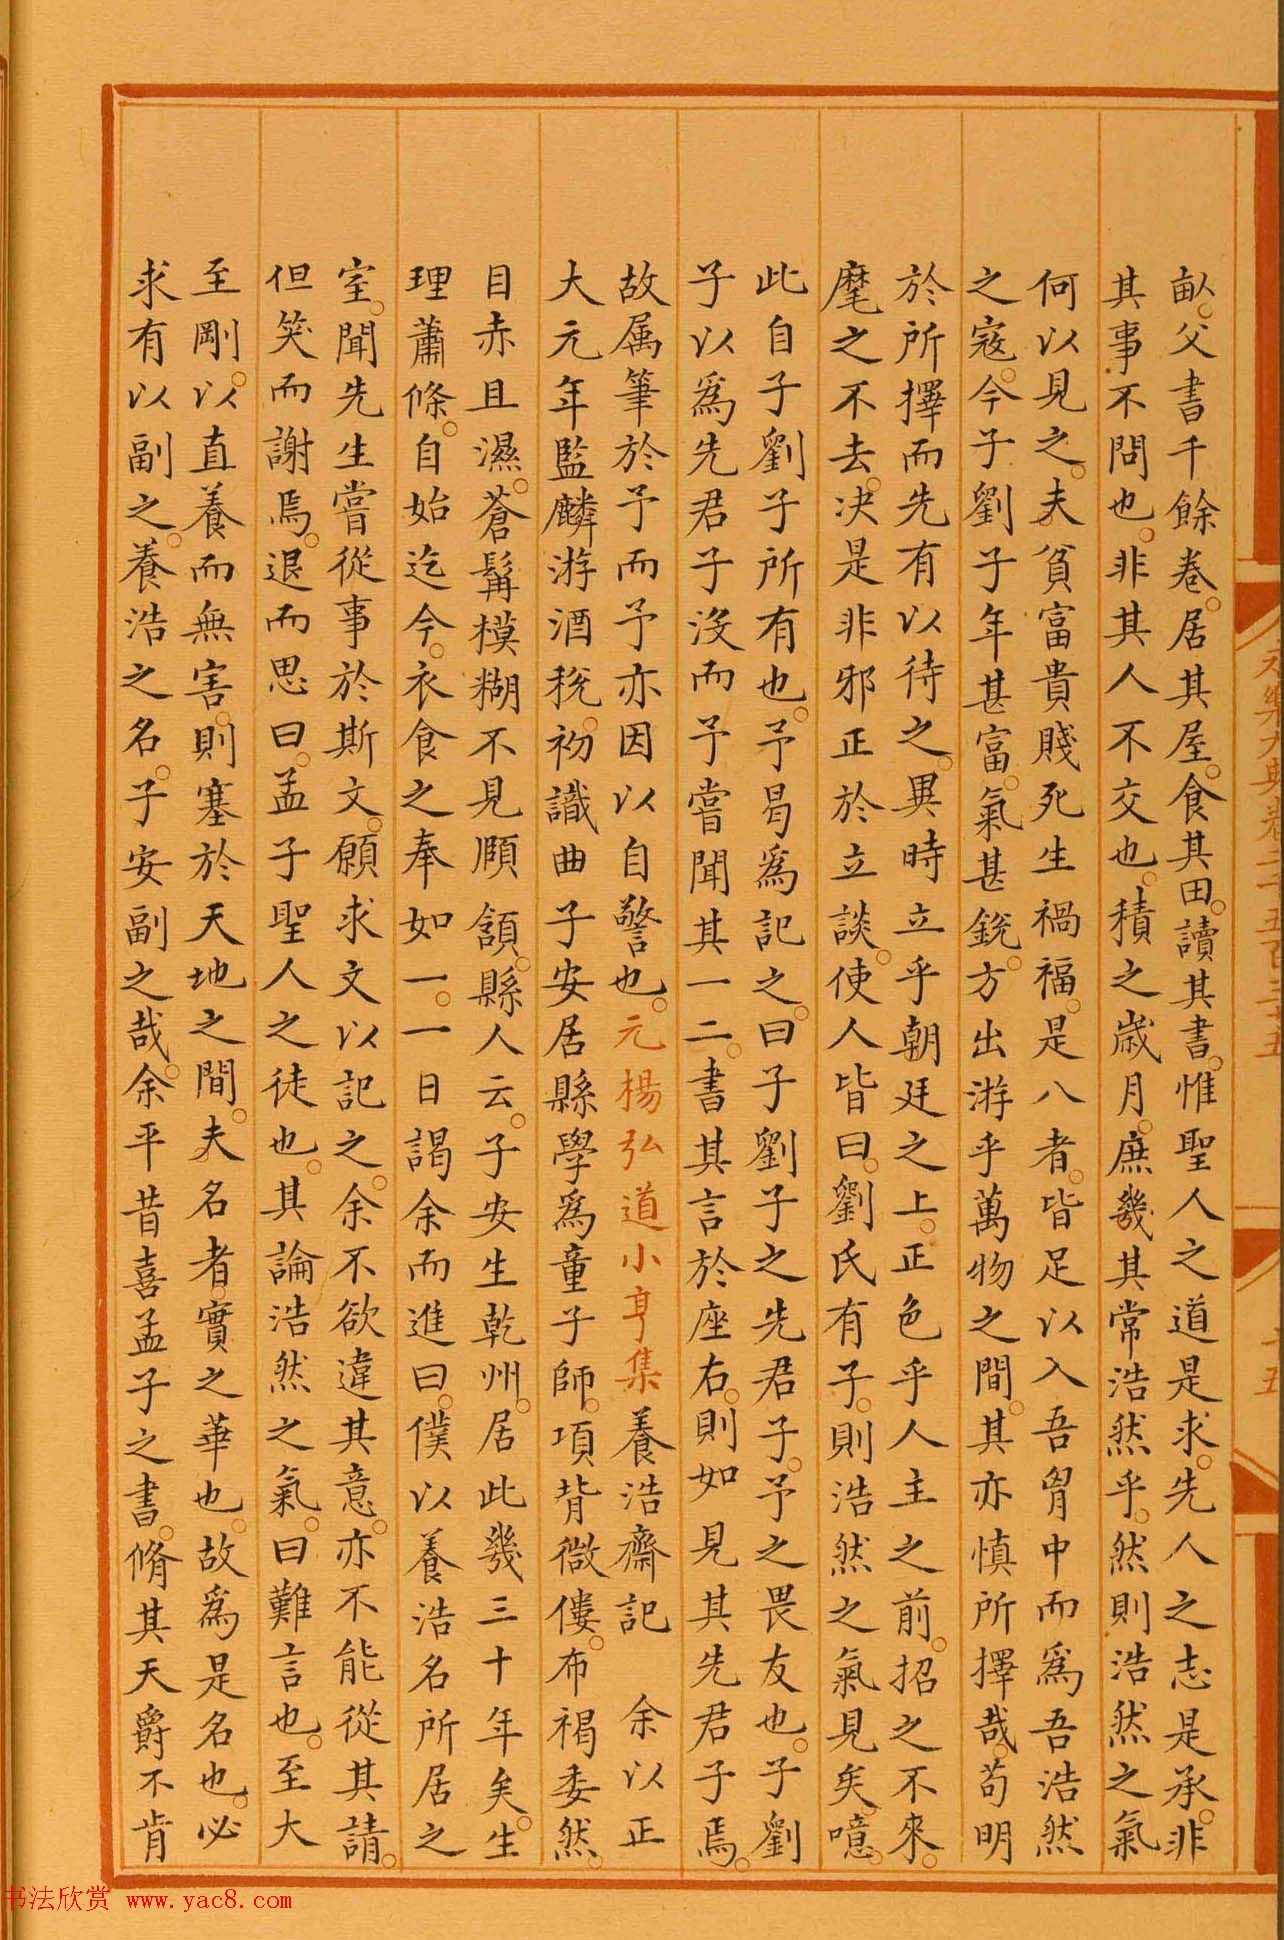 畝父書千餘卷居其屋食其田讀其書惟聖人之道是求先人之志是承非
其事不問也非其人不交也積之歲月庶幾其常浩然乎然則浩然之氣
何以見之夫貧富貴賤死生禍福是八者皆足以入吾胷中而爲吾浩然
之寇今子劉子年甚富氣甚銳方出游乎萬物之間其亦慎所擇哉苟明
於所擇而先有以待之異時立乎朝廷之上正色乎人主之前招之不來
麾之不去决是非邪正於立談使人皆曰劉氏有子則浩然之氣見矣噫
此自子劉子所有也予曷爲記之曰子劉子之先君子予之畏友也子劉
子以爲先君子沒而予嘗聞其一二書其言於座右則如見其先君子焉
故属筆於予而予亦因以自警也元楊弘道小亨集養浩齋記 余以正
大元年監麟游酒稅初識曲子安居縣學爲童子師項背微僂布褐委然
目赤且濕蒼髯模糊不見頤頷縣人云子安生乾州居此幾三十年矣生
理蕭條自始迄今衣食之奉如一一日謁余而進曰僕以養浩名所居之
室聞先生嘗從事於斯文願求文以記之余不欲違其意亦不能從其請
但笑而謝焉退而思曰孟子聖人之徒也其論浩然之氣曰難言也至大
至剛以直養而無害則塞於天地之間夫名者實之華也故爲是名也必
求有以副之養浩之名子安副之哉余平昔喜孟子之書脩其天爵不肯
永樂大典卷二千五百三十五
十五
书法欣赏 www.yac8.com